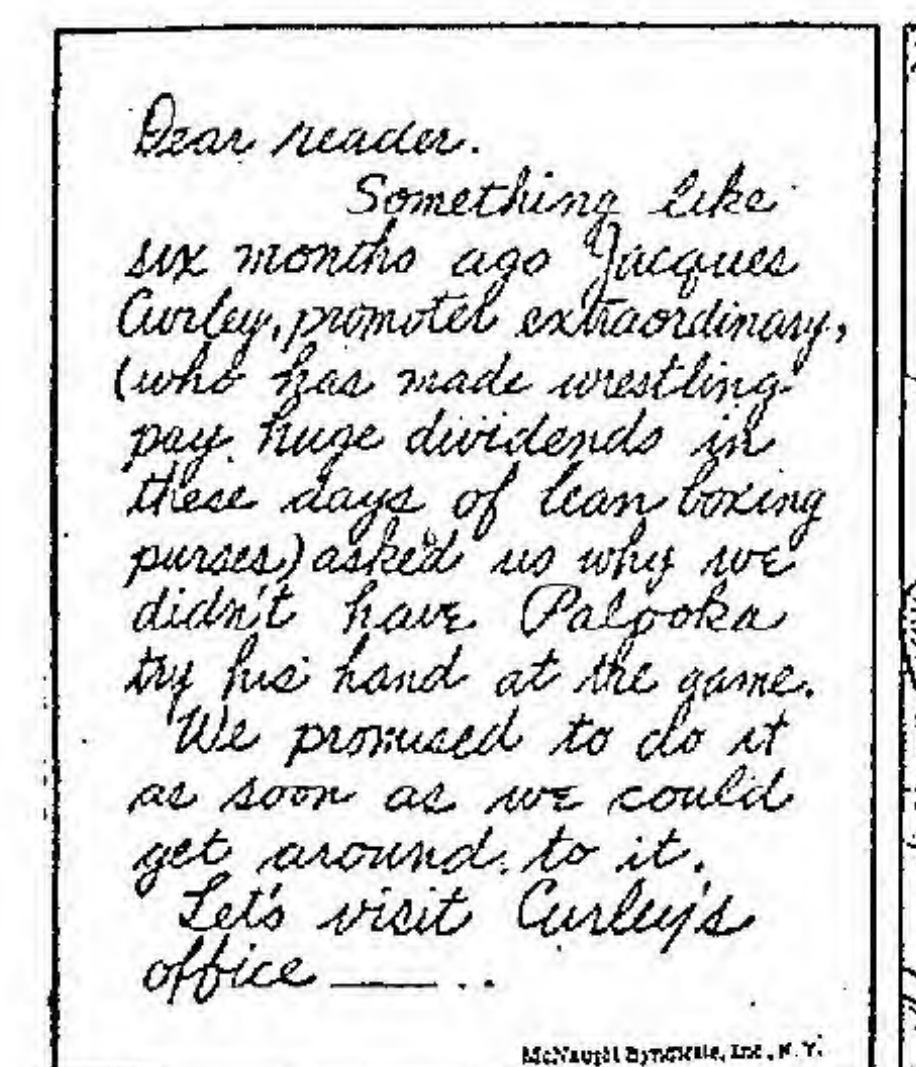 Dear reader.
Something like
six months ago Jacques
Curley, promoter extraordinary,
(who has made wrestling
pay huge dividends in
these days of lean boxing
purses) asked us why we
didn't have Palooka
try his hand at the game.
We promised to do it
as soon as we could
get around to it.
Let's visit Curley's
office — ..
McNaught Syndicate, Inc., N. Y.